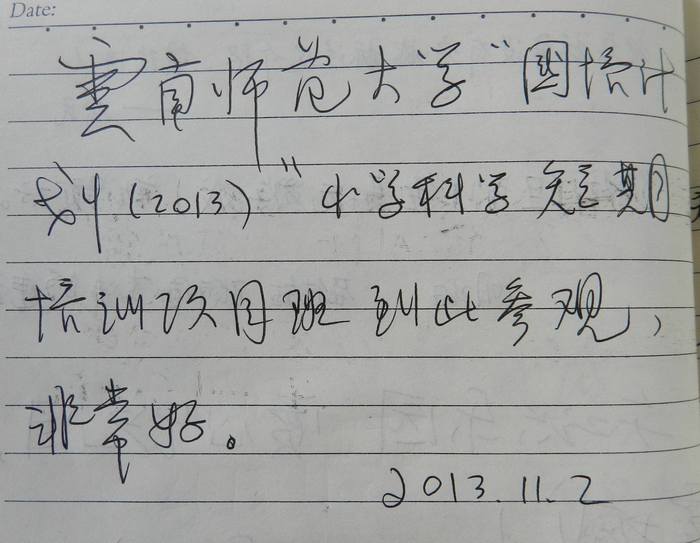 Date:
雲南师范大学"国培计
划(2013)"小学科学短期
培训项目班到此参观,
非常好。
2013.11.2